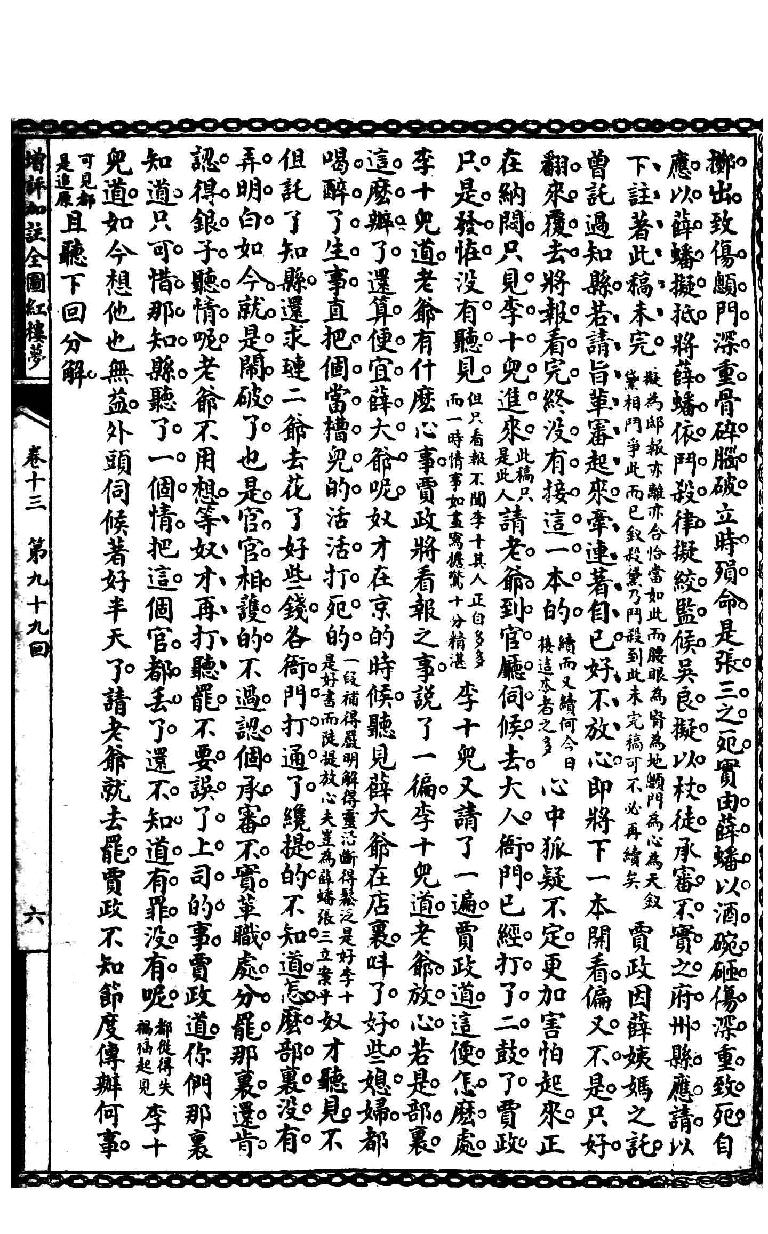 擲出致傷顖門深重骨碎腦破立時殞命是張三之死實由薛蟠以酒碗砸傷深重致死自
應以薛蟠擬抵將薛蟠依鬥殺律擬絞監候吳良擬以杖徒承審不實之府州縣應請以
下註著此稿未完擬為邸報亦離亦合恰當如此而腰眼為腎為地顖門為心為天叙黛相鬥爭此而已釵殺黛乃鬥殺到此未完稿可不必再續矣賈政因薛姨媽之託
曾託過知縣若請旨革審起來牽連著自己好不放心即將下一本開看偏又不是只好
翻來覆去將報看完終沒有接這一本的續而又續何今日接這本者之多心中狐疑不定更加害怕起來正
在納悶只見李十兒進來此稿只是此人請老爺到官廳伺候去大人衙門已經打了二鼓了賈政
只是發怔沒有聽見但只看報不聞李十其人正自多多而一時情事如畫寫搖驚十分精湛李十兒又請了一遍賈政道這便怎麽處
李十兒道老爺有什麽心事賈政將看報之事說了一徧李十兒道老爺放心若是部裏
這麽辦了還算便宜薛大爺呢奴才在京的時候聽見薛大爺在店裏呌了好些媳婦都
喝醉了生事直把個當槽兒的活活打死的一段補得嚴明解得靈活斷得鬆泛是好李十是好書而陡提放心夫豈為薛蟠張三立案乎奴才聽見不
但託了知縣還求璉二爺去花了好些錢各衙門打通了纔提的不知道怎麽部裏沒有
弄明白如今就是鬧破了也是官官相護的不過認個承審不實革職處分罷那裏還肯
認得銀子聽情呢老爺不用想等奴才再打聽罷不要誤了上司的事賈政道你們那裏
知道只可惜那知縣聽了一個情把這個官都丟了還不知道有罪沒有呢都從得失禍福起見李十
兒道如今想他也無益外頭伺候著好半天了請老爺就去罷賈政不知節度傳辦何事
可見都是進展且聽下回分解
增評加註全圖紅樓夢
卷十三 第九十九回
六